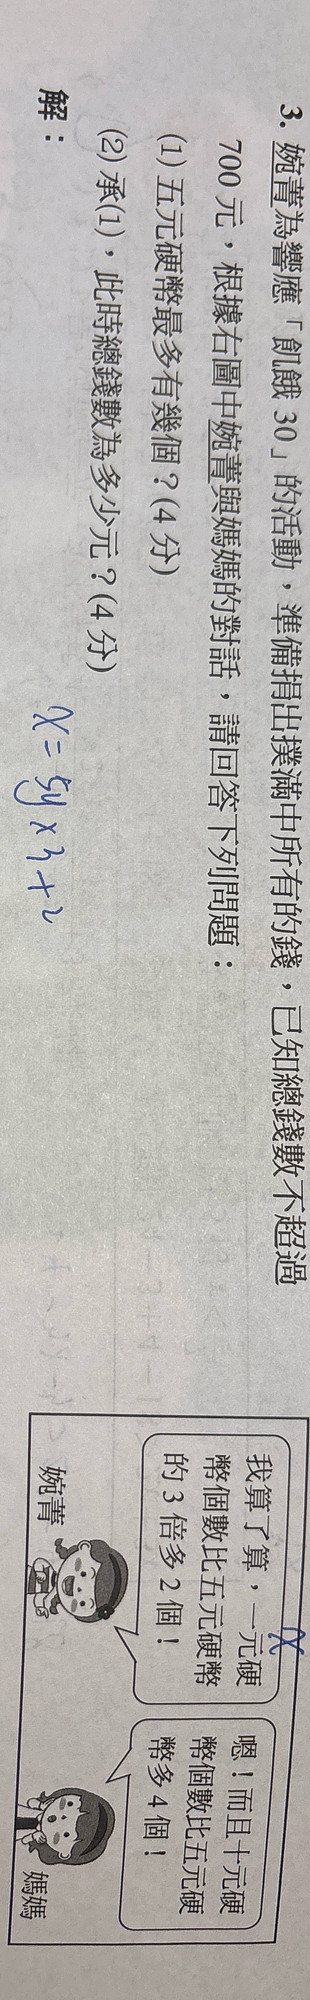 3. 婉菁為響應「飢餓 30」的活動，準備捐出撲滿中所有的錢，已知總錢數不超過
700 元，根據右圖中婉菁與媽媽的對話，請回答下列問題：
(1) 五元硬幣最多有幾個？(4 分)
(2) 承(1)，此時總錢數為多少元？(4 分)
解：
x = 5y × 3 + 2
x
我算了算，一元硬
幣個數比五元硬幣
的 3 倍多 2 個！
婉菁
嗯！而且十元硬
幣個數比五元硬
幣多 4 個！
媽媽